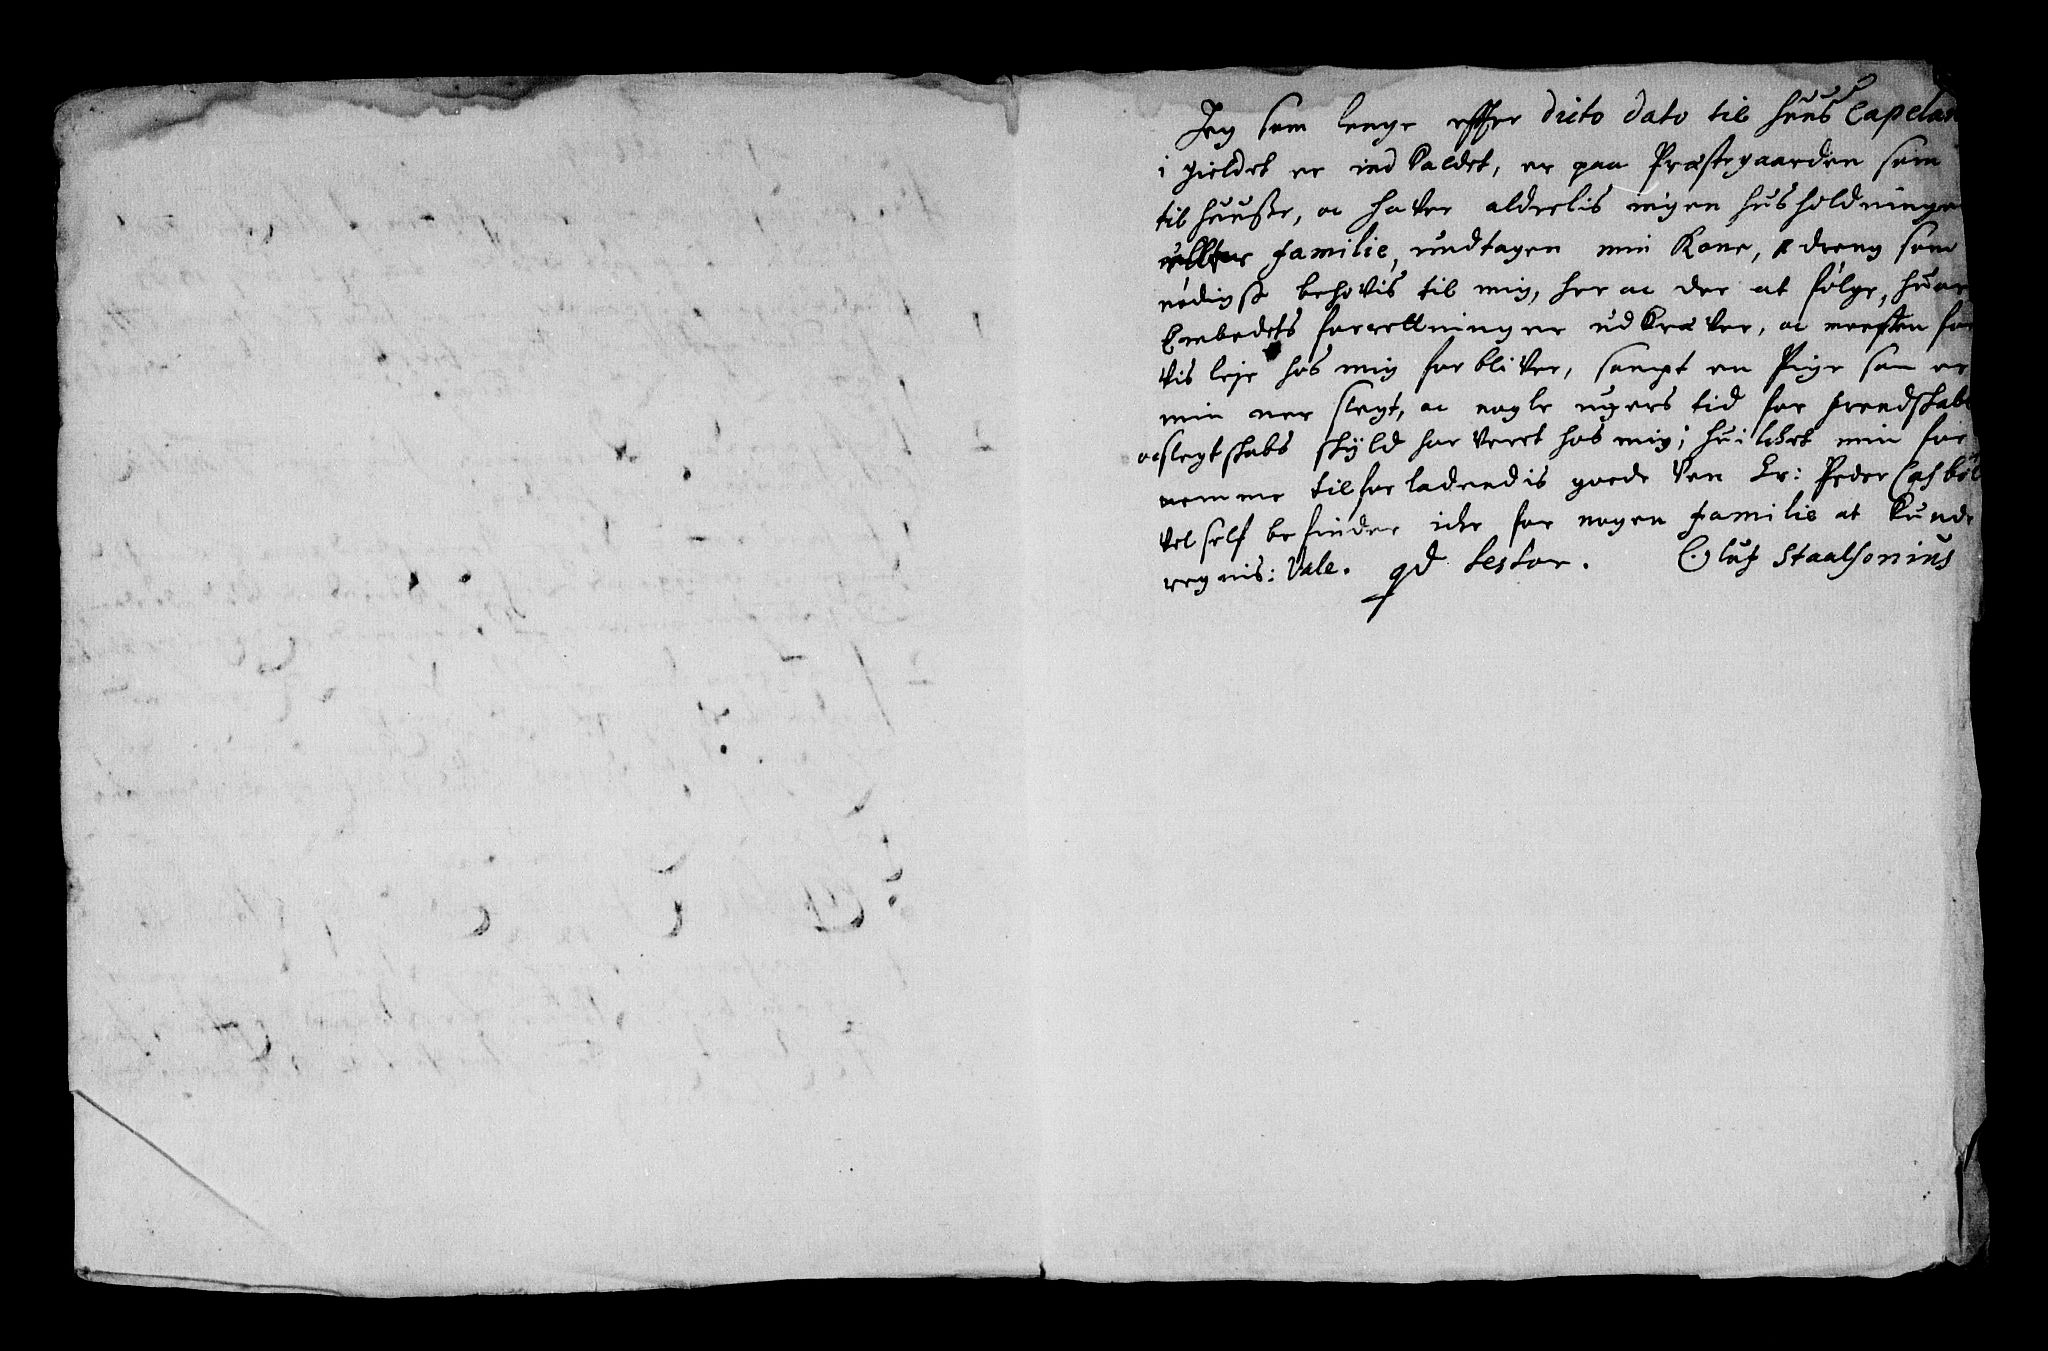 Jeg som lenge effter dicto dato til huus Capelan
i gieldet er ind kaldet, er paa Præstegaarden som
til huusse, oc haver alderlis ingen husholdninge
eller familie, undtagen min Kone, 1 dreng som
nødigst behøvis til mig, her oc der at følge, huor
Embedets forrettninger udkræver, oc meesten for
vis leje hos mig forbliver, sampt en Pige som er
min ner slegt, oc nogle ugers tid for frendskabs
oc slegtskabs skyld har veret hos mig; huilchet min for
nemme tilforladendis goede Ven Hr: Peder
vel self befinder iche for nogen familie at kunde
regnis: Vale. qd testor. Oluf Staalsonius